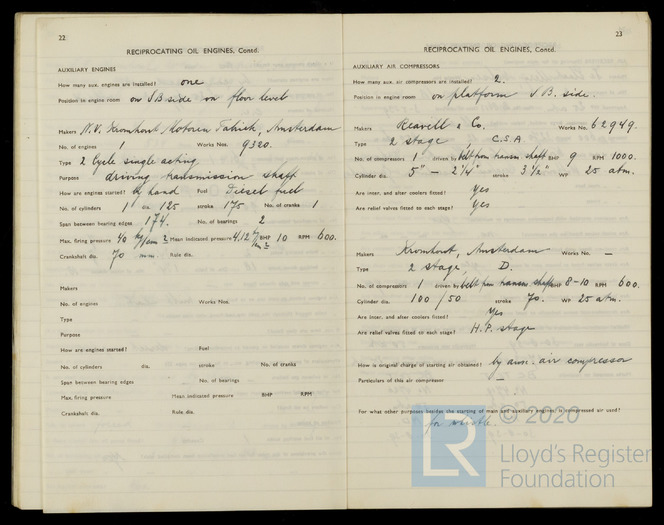 22
RECIPROCATING OIL ENGINES, Contd.
AUXILIARY ENGINES
How many aux. engines are installed? one
Position in engine room on S B side on floor level
Makers N.V. Kromhout Motoren Fabriek, Amsterdam
No. of engines 1 Works Nos. 9320.
Type 2 Cycle single acting
Purpose driving transmission shaft
How are engines started? by hand Fuel Diesel fuel
No. of cylinders 1 dia. 125 stroke 175 No. of cranks 1
Span between bearing edges 174. No. of bearings 2
Max. firing pressure 40 kg/cm 2 Mean indicated pressure 4,12 kg/cm 2 BHP 10 RPM 600.
Crankshaft dia. 70 mm. Rule dia.
Makers
No. of engines Works Nos.
Type
Purpose
How are engines started? Fuel
No. of cylinders dia. stroke No. of cranks
Span between bearing edges No. of bearings
Max. firing pressure Mean indicated pressure BHP RPM
Crankshaft dia. Rule dia.
23
RECIPROCATING OIL ENGINES, Contd.
AUXILIARY AIR COMPRESSORS
How many aux. air compressors are installed? 2.
Position in engine room on platform S B. side.
Makers Reavell & Co. Works No. 62949.
Type 2 stage, C.S.A
No. of compressors 1 driven by belt from transm shaft BHP 9 RPM 1000.
Cylinder dia. 5" - 2 1/4" stroke 3 1/2" WP 25 atm.
Are inter. and after coolers fitted? Yes
Are relief valves fitted to each stage? Yes
Makers Kromhout, Amsterdam Works No. —
Type 2 stage, D.
No. of compressors 1 driven by belt from transm shaft BHP 8-10 RPM 600.
Cylinder dia. 100/50 stroke 70. WP 25 atm.
Are inter. and after coolers fitted? Yes
Are relief valves fitted to each stage? H.P. stage
How is original charge of starting air obtained? by aux. air compressor
Particulars of this air compressor —
For what other purposes besides the starting of main and auxiliary engines, is compressed air used?
for whistle.
LR © 2020
Lloyd's Register
Foundation